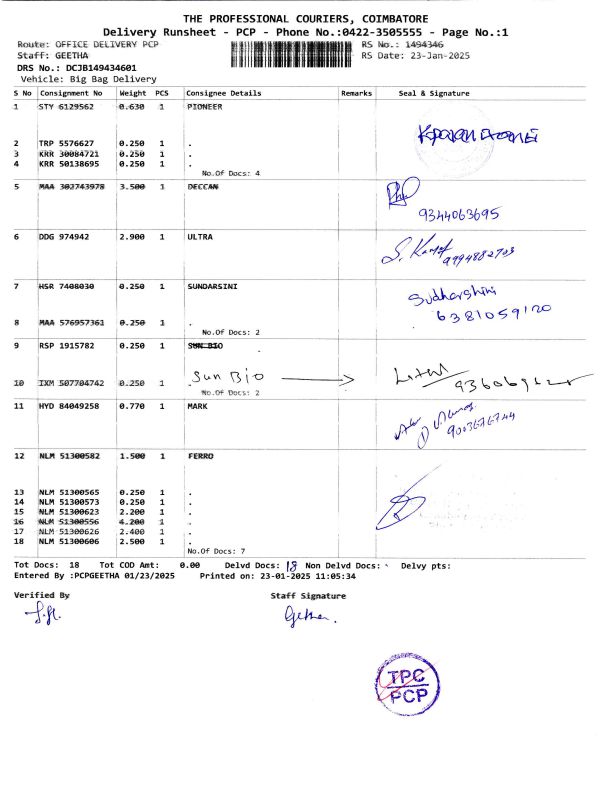 THE PROFESSIONAL COURIERS, COIMBATORE
Delivery Runsheet - PCP - Phone No.:0422-3505555 - Page No.:1
Route: OFFICE DELIVERY PCP RS No.: 1494346
Staff: GEETHA RS Date: 23-Jan-2025
DRS No.: DCJB149434601
Vehicle: Big Bag Delivery
S No Consignment No Weight PCS Consignee Details Remarks Seal & Signature
1 STY 6129562 0.630 1 PIONEER
2 TRP 5576627 0.250 1 .
3 KRR 30084721 0.250 1 .
4 KRR 50138695 0.250 1 .
No.Of Docs: 4
5 MAA 302743978 3.500 1 DECCAN
9344063695
6 DDG 974942 2.900 1 ULTRA
9994882703
7 HSR 7408030 0.250 1 SUNDARSINI
Sudharshini
6381059120
8 MAA 576957361 0.250 1 .
No.Of Docs: 2
9 RSP 1915782 0.250 1 SUN BIO
Sun Bio
10 IXM 507704742 0.250 1 .
No.Of Docs: 2
11 HYD 84049258 0.770 1 MARK
12 NLM 51300582 1.500 1 FERRO
13 NLM 51300565 0.250 1 .
14 NLM 51300573 0.250 1 .
15 NLM 51300623 2.200 1 .
16 NLM 51300556 4.200 1 .
17 NLM 51300626 2.400 1 .
18 NLM 51300606 2.500 1 .
No.Of Docs: 7
Tot Docs: 18 Tot COD Amt: 0.00 Delvd Docs: 18 Non Delvd Docs: Delvy pts:
Entered By :PCPGEETHA 01/23/2025 Printed on: 23-01-2025 11:05:34
Verified By Staff Signature
TPC
PCP